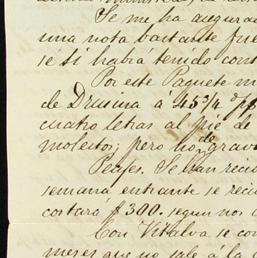 Se me ha asegurad
una nota bastante fue
sé si habrá tenido cont
Por este Paquete m
de Drusina á 45 3/4 d p
cuatro letras al pié de
molesto; pero no grav
Pcafes. Se han reci
semana entrante se reci
costará $300. segun nos
Con Vitalva se co
meses que no sale á la